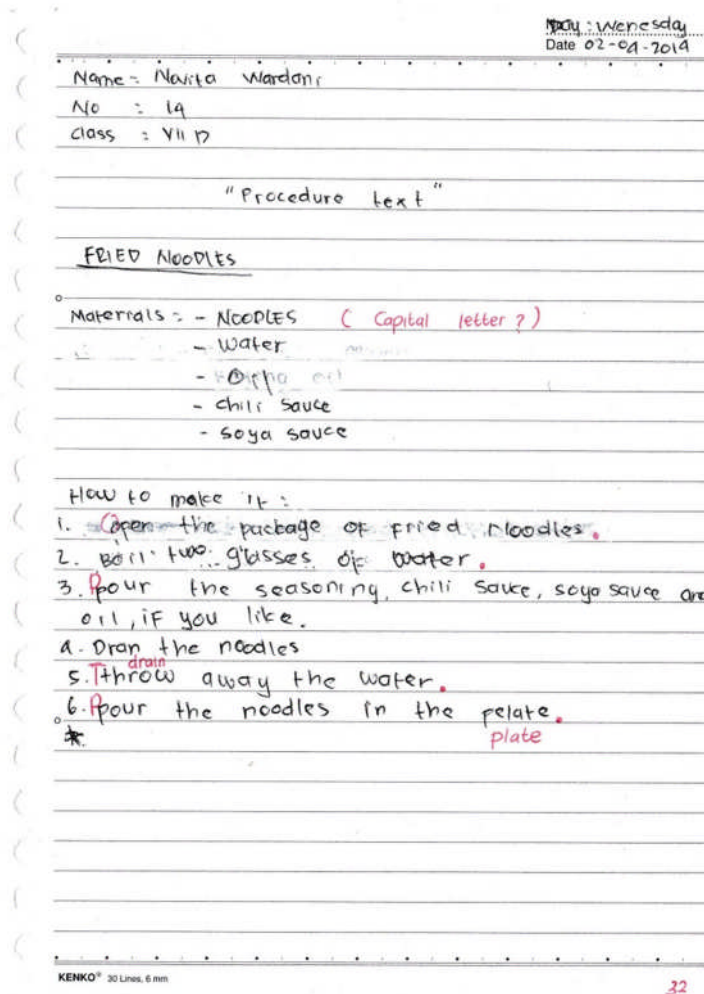 Day : Wenesday
Date 02-04-2014
Name : Novita Wardani
No : 14
Class : VII D
"Procedure text"
FRIED NOODLES
Materials : - NOODLES ( Capital letter ? )
- Water
- oil
- chili sauce
- soya sauce
How to make it :
1. Open the package of fried Noodles.
2. Boil two glasses of water.
3. Ppour the seasoning, chili sauce, soya sauce and
oil, if you like.
4. Dran the noodles
drain
5. Tthrow away the water.
6. Ppour the noodles in the pelate.
plate
KENKO® 30 Lines, 6 mm
32